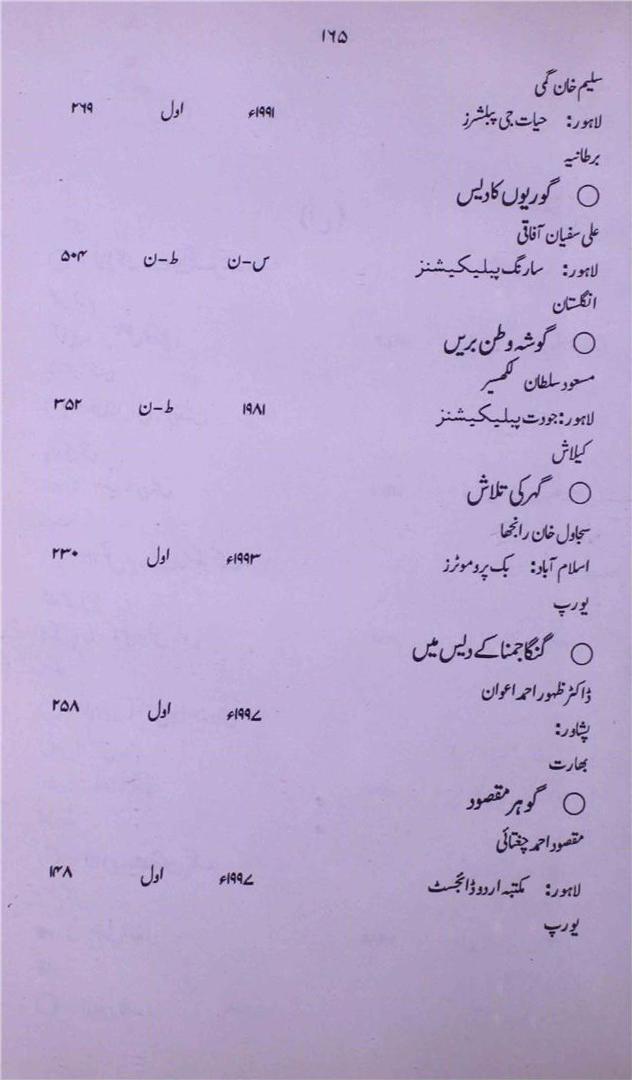 ۱۶۵
سلیم خان گمی
لاہور: حیات جی پبلشرز ۱۹۹۱ء اول ۲۶۹
برطانیہ
○ گوریوں کا دیس
علی سفیان آفاقی
لاہور: سارنگ پبلیکیشنز س-ن ط-ن ۵۰۴
انگلستان
○ گوشہ وطن بریں
مسعود سلطان لکھسیر
لاہور: جودت پبلیکیشنز ۱۹۸۱ ط-ن ۳۵۲
کیلاش
○ گہر کی تلاش
سجاول خان رانجھا
اسلام آباد: بک پروموٹرز ۱۹۹۳ء اول ۲۳۰
یورپ
○ گنگا جمنا کے دیس میں
ڈاکٹر ظہور احمد اعوان
پشاور: ۱۹۹۷ء اول ۲۵۸
بھارت
○ گوہر مقصود
مقصود احمد چغتائی
لاہور: مکتبہ اردو ڈائجسٹ ۱۹۹۷ء اول ۱۴۸
یورپ